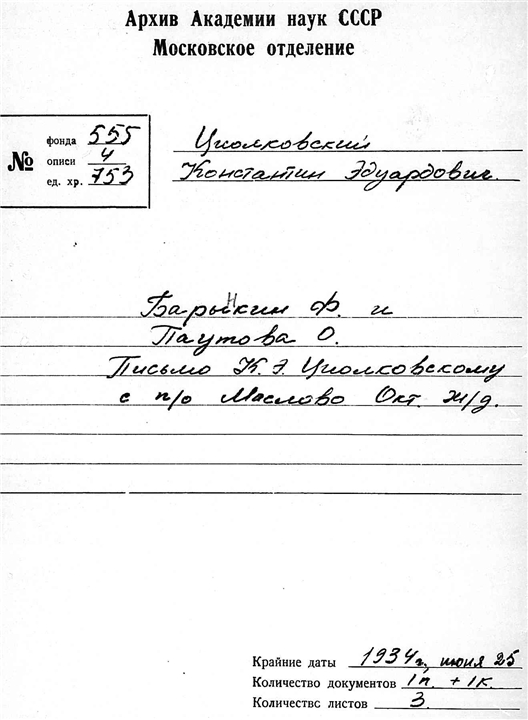 Архив Академии наук СССР
Московское отделение
№
фонда 555
описи 4
ед. хр. 753
Циолковский
Константин Эдуардович.
Барынкин Ф. и
Паутова О.
Письмо К.Э. Циолковскому
с п/о Маслово Окт. ж/д.
Крайние даты 1934г, июня 25
Количество документов 1п. + 1к.
Количество листов 3.